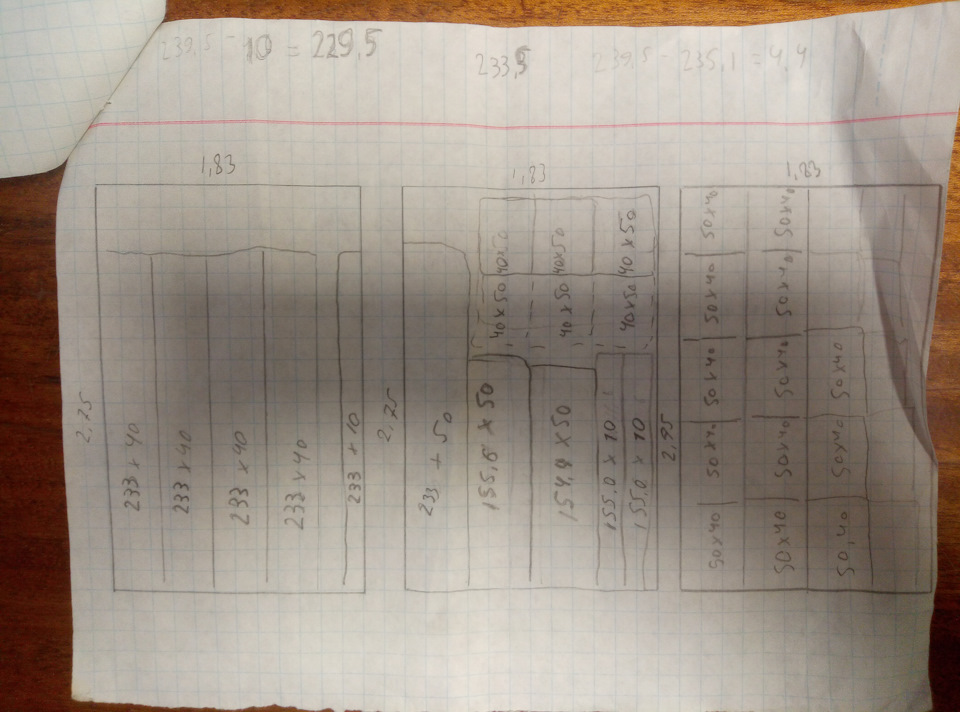 239,5 - 10 = 229,5
233,5
239,5 - 235,1 = 4,4
1,83
2,75
233 x 40
233 x 40
233 x 40
233 x 40
233 x 10
1,83
2,75
233 + 50
155,6 x 50
154,8 x 50
155,0 x 10
155,0 x 10
40x50 40x50
40x50 40x50
40x50 40x50
1,83
2,75
50x40 50x40 50x40 50x40 50x40
50x40 50x40 50x40 50x40 50x40
50,40 50x40 50x40